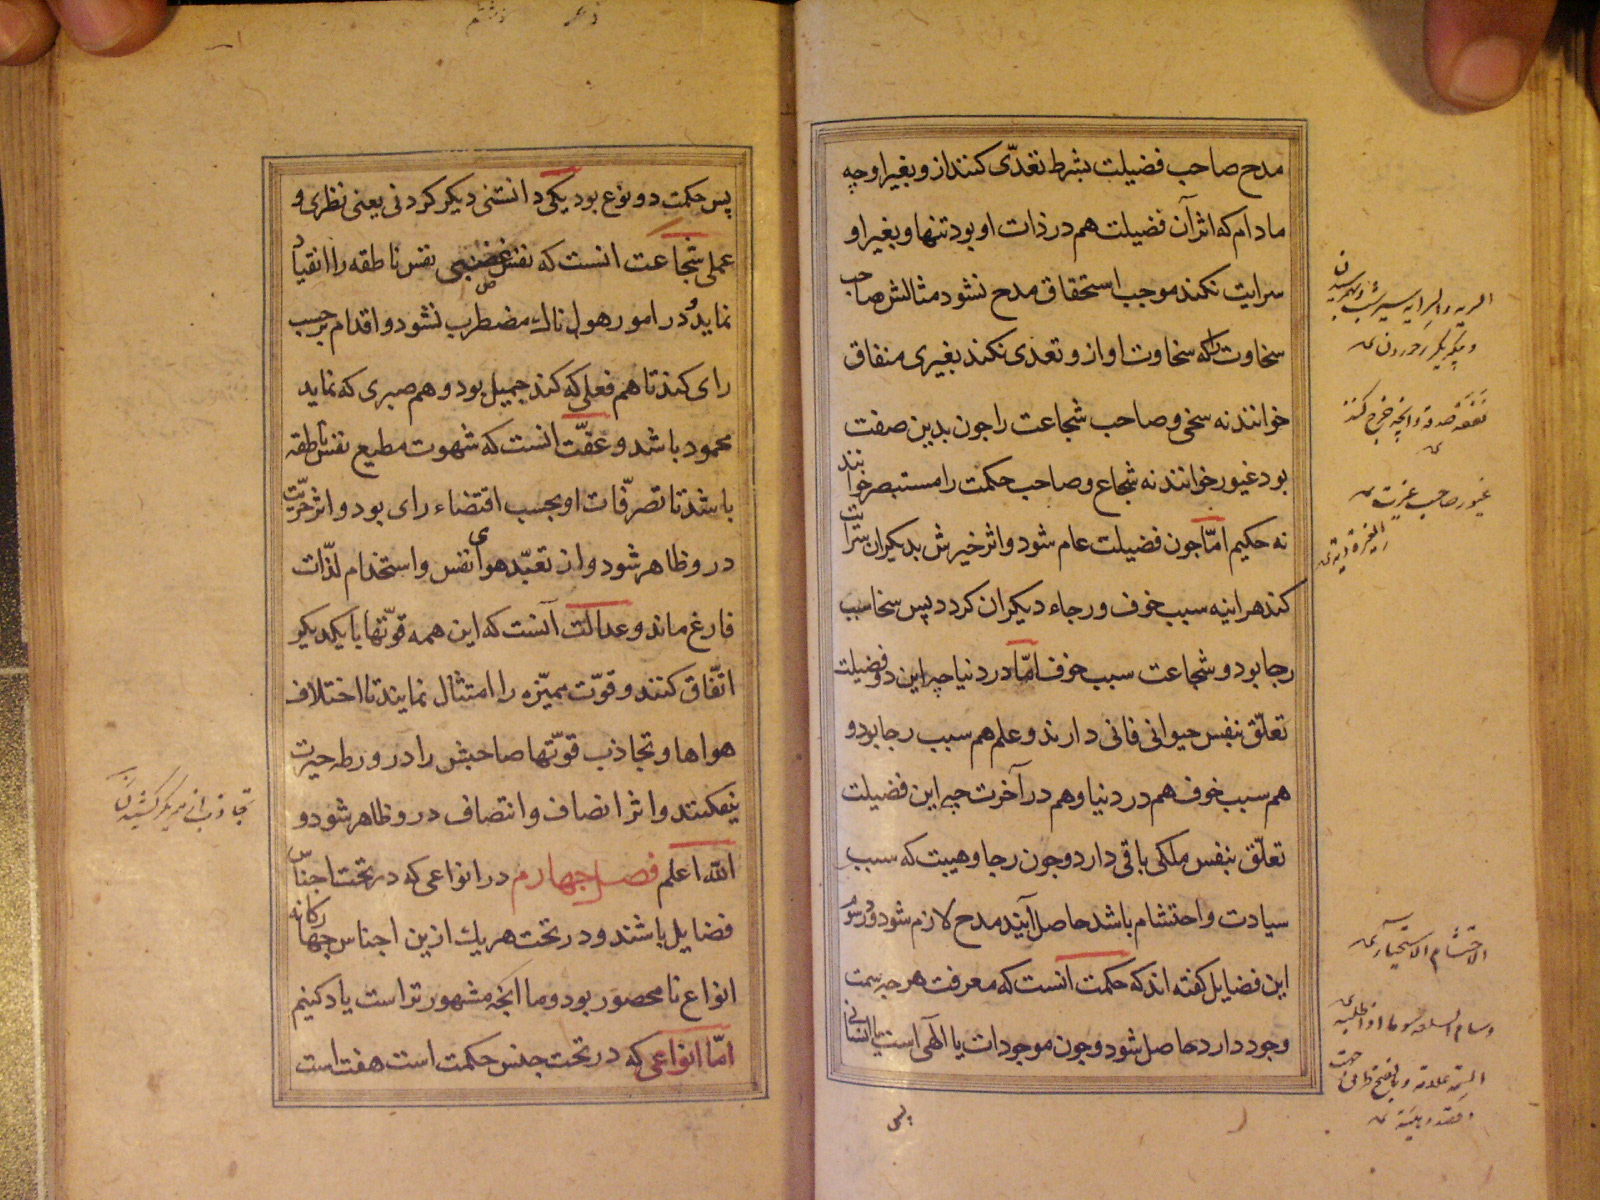 مدح صاحب فضیلت بشرط تعدّی کنند از و بغیر او چه
مادام که اثر آن فضیلت هم در ذات او بود تنها و بغیر او
سرایت نکند موجب استحقاق مدح نشود مثالش صاحب
سخاوت را که سخاوت او از و تعدی نکند بغیری منفاق
خوانند نه سخی و صاحب شجاعت را جون بدین صفت
بود غیور خوانند نه شجاع و صاحب حکمت را مستبصر خوانند
نه حکیم امّا جون فضیلت عام شود و اثر خیرش بدیکران سرایت
کند هراینه سبب خوف و رجاء دیکران کردد پس سخا سبب
رجا بود و شجاعت سبب خوف امّا در دنیا چه این دو فضیلت
تعلّق بنفس حیوانی فانی دارند و علم هم سبب رجا بود و
هم سبب خوف هم در دنیا و هم در آخرت جه این فضیلت
تعلّق بنفس ملکی باقی دارد و جون رجا و هیبت که سبب
سیادت و احتشام باشد حاصل آیند مدح لازم شود و در رسوم
این فضایل کفته اند که حکمت انست که معرفت هرجه سمت
وجود دارد حاصل شود و جون موجودات یا الهی است یا انسانی
پس
غیور صاحب غیرت
پس حکمت دو نوع بود یکی دانستنی دیکر کردنی یعنی نظری و
عملی شجاعت انست که نفس غضبی نفس ناطقه را انقیاد
نماید و در امور هولناک مضطرب نشود و اقدام بر حسب
رای کند تا هم فعلی که کند جمیل بود و هم صبری که نماید
محمود باشد و عفّت انست که شهوت مطیع نفس ناطقه
باشد تا تصرّفات او بحسب اقتضاء رای بود و اثر حرّیت
در و ظاهر شود و از تعبّد هوای نفس و استخدام لذّات
فارغ ماند و عدالت آنست که این همه قوّتها با یکدیکر
اتّفاق کنند و قوّت ممیّزه را امتثال نمایند تا اختلاف
هواها و تجاذب قوّتها صاحبش را در ورطه حیرت
نیفکنند و اثر انصاف و انتصاف در و ظاهر شود و
الله اعلم فصل جهارم در انواعی که در تحت اجناس
فضایل باشند و در تحت هر یک ازین اجناس جهارکانه
انواع نامحصور بود و ما انجه مشهورتر است یاد کنیم
امّا انواعی که در تحت جنس حکمت است هفت است